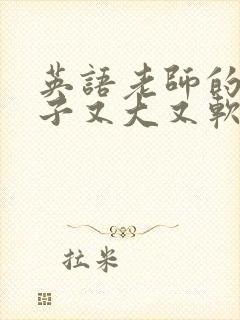 英語老師的
子又大又軟
拉米